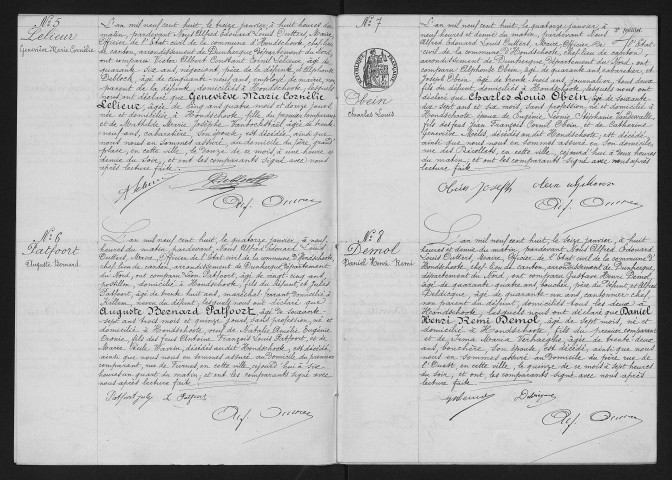 N° 5
Lelieur
Geneviève Marie Cornélie
L'an mil neuf cent huit, le treize janvier, à huit heures du
matin, pardevant Nous Alfred Edouard Louis Outters, Maire, Officier
de l'Etat civil de la commune d'Hondschoote, chef-lieu
de canton, arrondissement de Dunkerque, Département du Nord,
ont comparu Victor Albert Constant Cornil Lelieur, âgé de
quarante six ans, négociant, père de la défunte, et Alphonse
Debloch, âgé de cinquante neuf ans, employé de
parent de la défunte, domiciliés à Hondschoote, lesquels
nous ont déclaré que Geneviève Marie Cornélie
Lelieur, âgée de cinq ans quatre mois et douze jours,
née et domiciliée à Hondschoote, fille du premier comparant
et de Mathilde Marie Joseph, âgée de trente
neuf ans, cabaretière, son épouse, est décédée, ainsi que
nous nous en sommes assuré, au domicile du père, grand'
place, en cette ville, le douze de ce mois à une heure et
demie du soir, et ont les comparants signé avec nous après
lecture faite.
N° 6
Patfoort
Auguste Bernard
L'an mil neuf cent huit, le quatorze janvier, à neuf
heures du matin, pardevant Nous Alfred Edouard Louis
Outters, Maire, Officier de l'Etat civil de la commune d'Hondschoote,
chef-lieu de canton, arrondissement de Dunkerque, Département
du Nord, ont comparu Léon Patfoort, âgé de vingt cinq ans,
postillon, domicilié à Hondschoote, fils du défunt, et Jules
Patfoort, âgé de trente huit ans, maréchal ferrant, domicilié à
Killem, neveu du défunt, lesquels nous ont déclaré que
Auguste Bernard Patfoort, âgé de soixante
sept ans trois mois et quinze jours, sans profession, né et
domicilié à Hondschoote, veuf de Natalie Amélie Eugénie
fils des feus Antoine François Louis Patfoort, et de
Marie Cécile décédés audit Hondschoote, est décédé,
ainsi que nous nous en sommes assuré au domicile du premier
comparant, rue de Furnes, en cette ville, cejourd'hui à six
heures un quart du matin, et ont les comparants signé avec
nous après lecture faite.
Patfoort July L Patfoort
N° 7
Obein
Charles Louis
L'an mil neuf cent huit, le quatorze janvier, à
neuf heures et demie du matin, pardevant Nous
Alfred Edouard Louis Outters, Maire, Officier de l'Etat
civil de la commune d'Hondschoote, chef-lieu de canton,
arrondissement de Dunkerque, Département du Nord, ont
comparu Alphonse Obein, âgé de quarante ans, cabaretier, et
Joseph Obein, âgé de trente sept ans, journalier, tous deux
fils du défunt et domiciliés à Hondschoote, lesquels nous ont
déclaré que Charles Louis Obein, âgé de soixante
dix sept ans et six mois, sans profession, né et domicilié à
Hondschoote, époux de Eugénie Léonie Stéphanie
fils des feus Jean François Cornil Obein, et de Catherine
Geneviève décédés au dit Hondschoote, est décédé,
ainsi que nous nous en sommes assuré en son domicile,
rue des Récollets, en cette ville, cejourd'hui à deux heures
du matin, et ont les comparants signé avec nous après
lecture faite.
Obein Joseph Obein Alphonse
N° 8
Demol
Daniel Henri Remi
L'an mil neuf cent huit, le seize janvier, à
huit heures et demie du matin, pardevant Nous Alfred Edouard
Louis Outters, Maire, Officier de l'Etat civil de la commune d'
Hondschoote, chef-lieu de canton, arrondissement de Dunkerque,
département du Nord, ont comparu Gustave Henri Demol,
âgé de quarante quatre ans, boucher, père du défunt, et Alfred
Deldicque, âgé de quarante un ans, cordonnier,
parent du défunt, domiciliés tous les deux à
Hondschoote, lesquels nous ont déclaré que Daniel
Henri Remi Demol, âgé de sept mois, né et
domicilié à Hondschoote, fils du premier comparant
et de Irma Maria Verhaeghe, âgée de trente deux
ans, bouchère, son épouse, est décédé, ainsi que nous
nous en sommes assuré au domicile du père, rue de
l'Ouest, en cette ville, le quinze de ce mois à sept heures
du soir, et ont les comparants signé avec nous après
lecture faite.